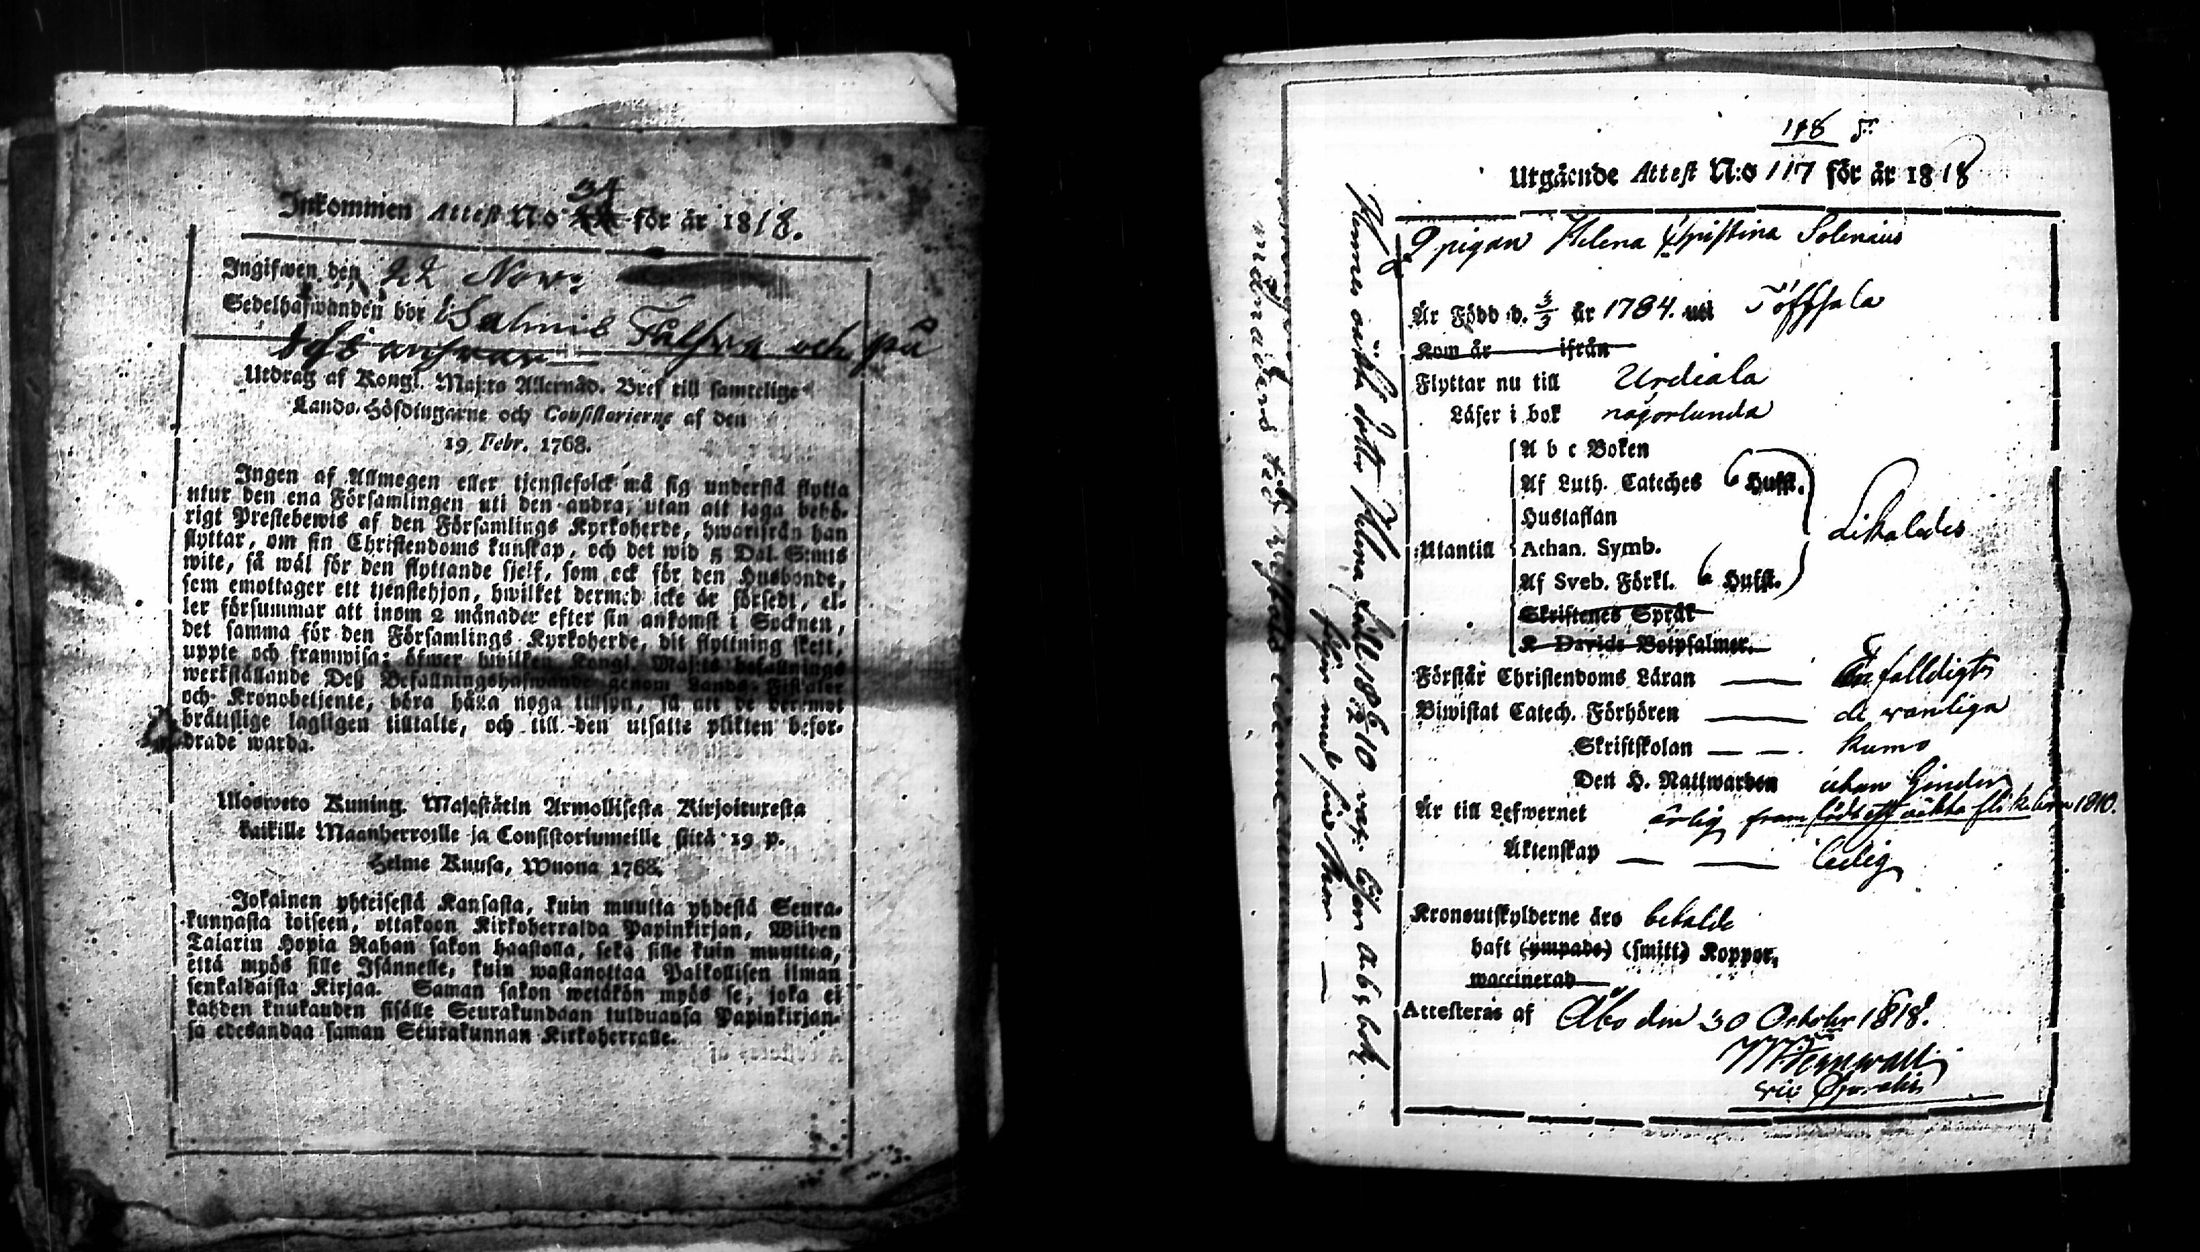 34
Inkommen Attest No för år 1818.
Ingifwen den 22 Nov:
Sedelhafwanden bor i Salmis Falswa och på
Utdrag af Kongl. Maj:ts Allernåd. Bref till samtelige
Lands-Höfdingarne och Consistorierne af den
19 Febr. 1768.
Ingen af Allmogen eller tjenstefolck må sig understå flytta
utur den ena Församlingen uti den andra, utan att taga behö-
rigt Prestebewis af den Församlings Kyrkoherde, hwarifrån han
flyttar, om sin Christendoms kunskap, och det wid 5 Dal. S:mts
wite, så wäl för den flyttande sjelf, som ock för den Husbonde,
som emottager ett tjenstehjon, hwilket dermed icke är försedt, el-
ler försummar att inom 2 månader efter sin ankomst i Socknen,
det samma för den Församlings Kyrkoherde, dit flyttning skett,
uppte och framwisa; öfwer hwilken Kongl. Maj:ts befallnings
werkställande Deß Befallningshafwande genom Lands-Fiskaler
och Kronobetjente, böra hafwa noga tillsyn, så att de deremot
bråttslige lagligen tilltalte, och till den utsatte plikten befor-
drade warda.
Ulosweto Kuning. Majestätin Armollisesta Kirjoituxesta
kaikille Maanherroille ja Consistoriumeille siitä 19 p.
Helme Kuusa, Wuona 1768.
Jokainen yhteisestä Kansasta, kuin muutta yhdestä Seura-
kunnasta toiseen, ottakoon Kirkoherralda Papinkirjan, Wiiden
Talarin Hopia Rahan sakon haastolla, sekä sille kuin muuttaa,
että myös sille Isännelle, kuin wastanottaa Palkollisen ilman
senkaldaista Kirjaa. Saman sakon wetäkön myös se, joka ei
kahden kuukauden sisälle Seurakundaan tulduansa Papinkirjan-
sa edesandaa saman Seurakunnan Kirkoherralle.
118
Utgående Attest N:o 117 för år 1818
Pigan Helena Christina Solenius
Är Född d. 3/3 år 1784. uti Töfsala
Kom år ifrån
Flyttar nu till Urdiala
Läser i bok någorlunda
A b c Boken
Af Luth. Cateches 6 Hufst.
Hustaflan
Utantill Athan. Symb.
Af Sveb. Förkl. 6 Hufst.
Likaledes
Skriftenes Språk
K Davids Botpsalmer.
Förstår Christendoms Läran Enfalldigt
Biwistat Catech. Förhören de wanliga
Skriftskolan
Den H. Nattwarden utan hinder
Är till Lefwernet ärlig fram födt oäkta flickebarn 1810.
Äktenskap ledig
Kronoutskylderne äro betalde
haft (ympade) (smitt) Koppor,
waccinerad
Attesteras af Åbo den 30 October 1818.
Hennes oäkta dotter Helena född 18 10
följer med